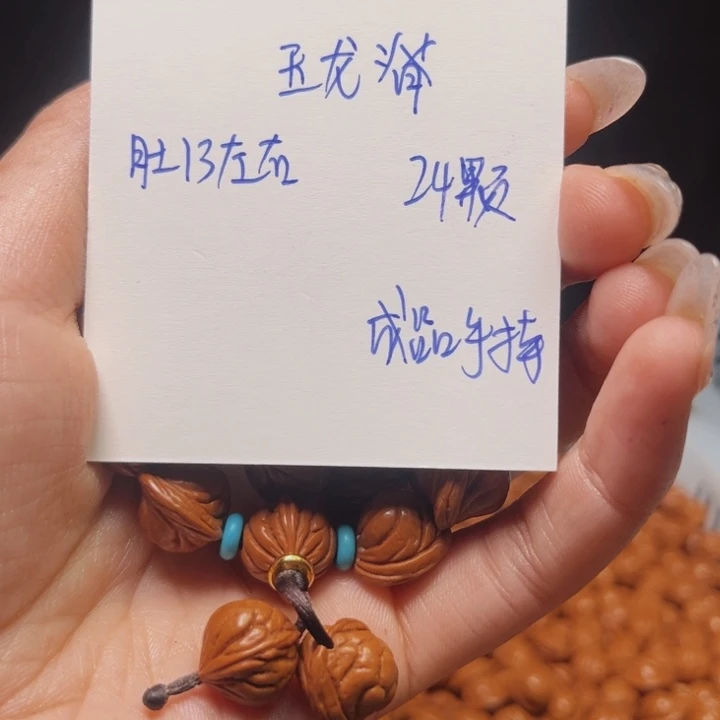 玉龙滿
肚13左右 24颗
成品手持